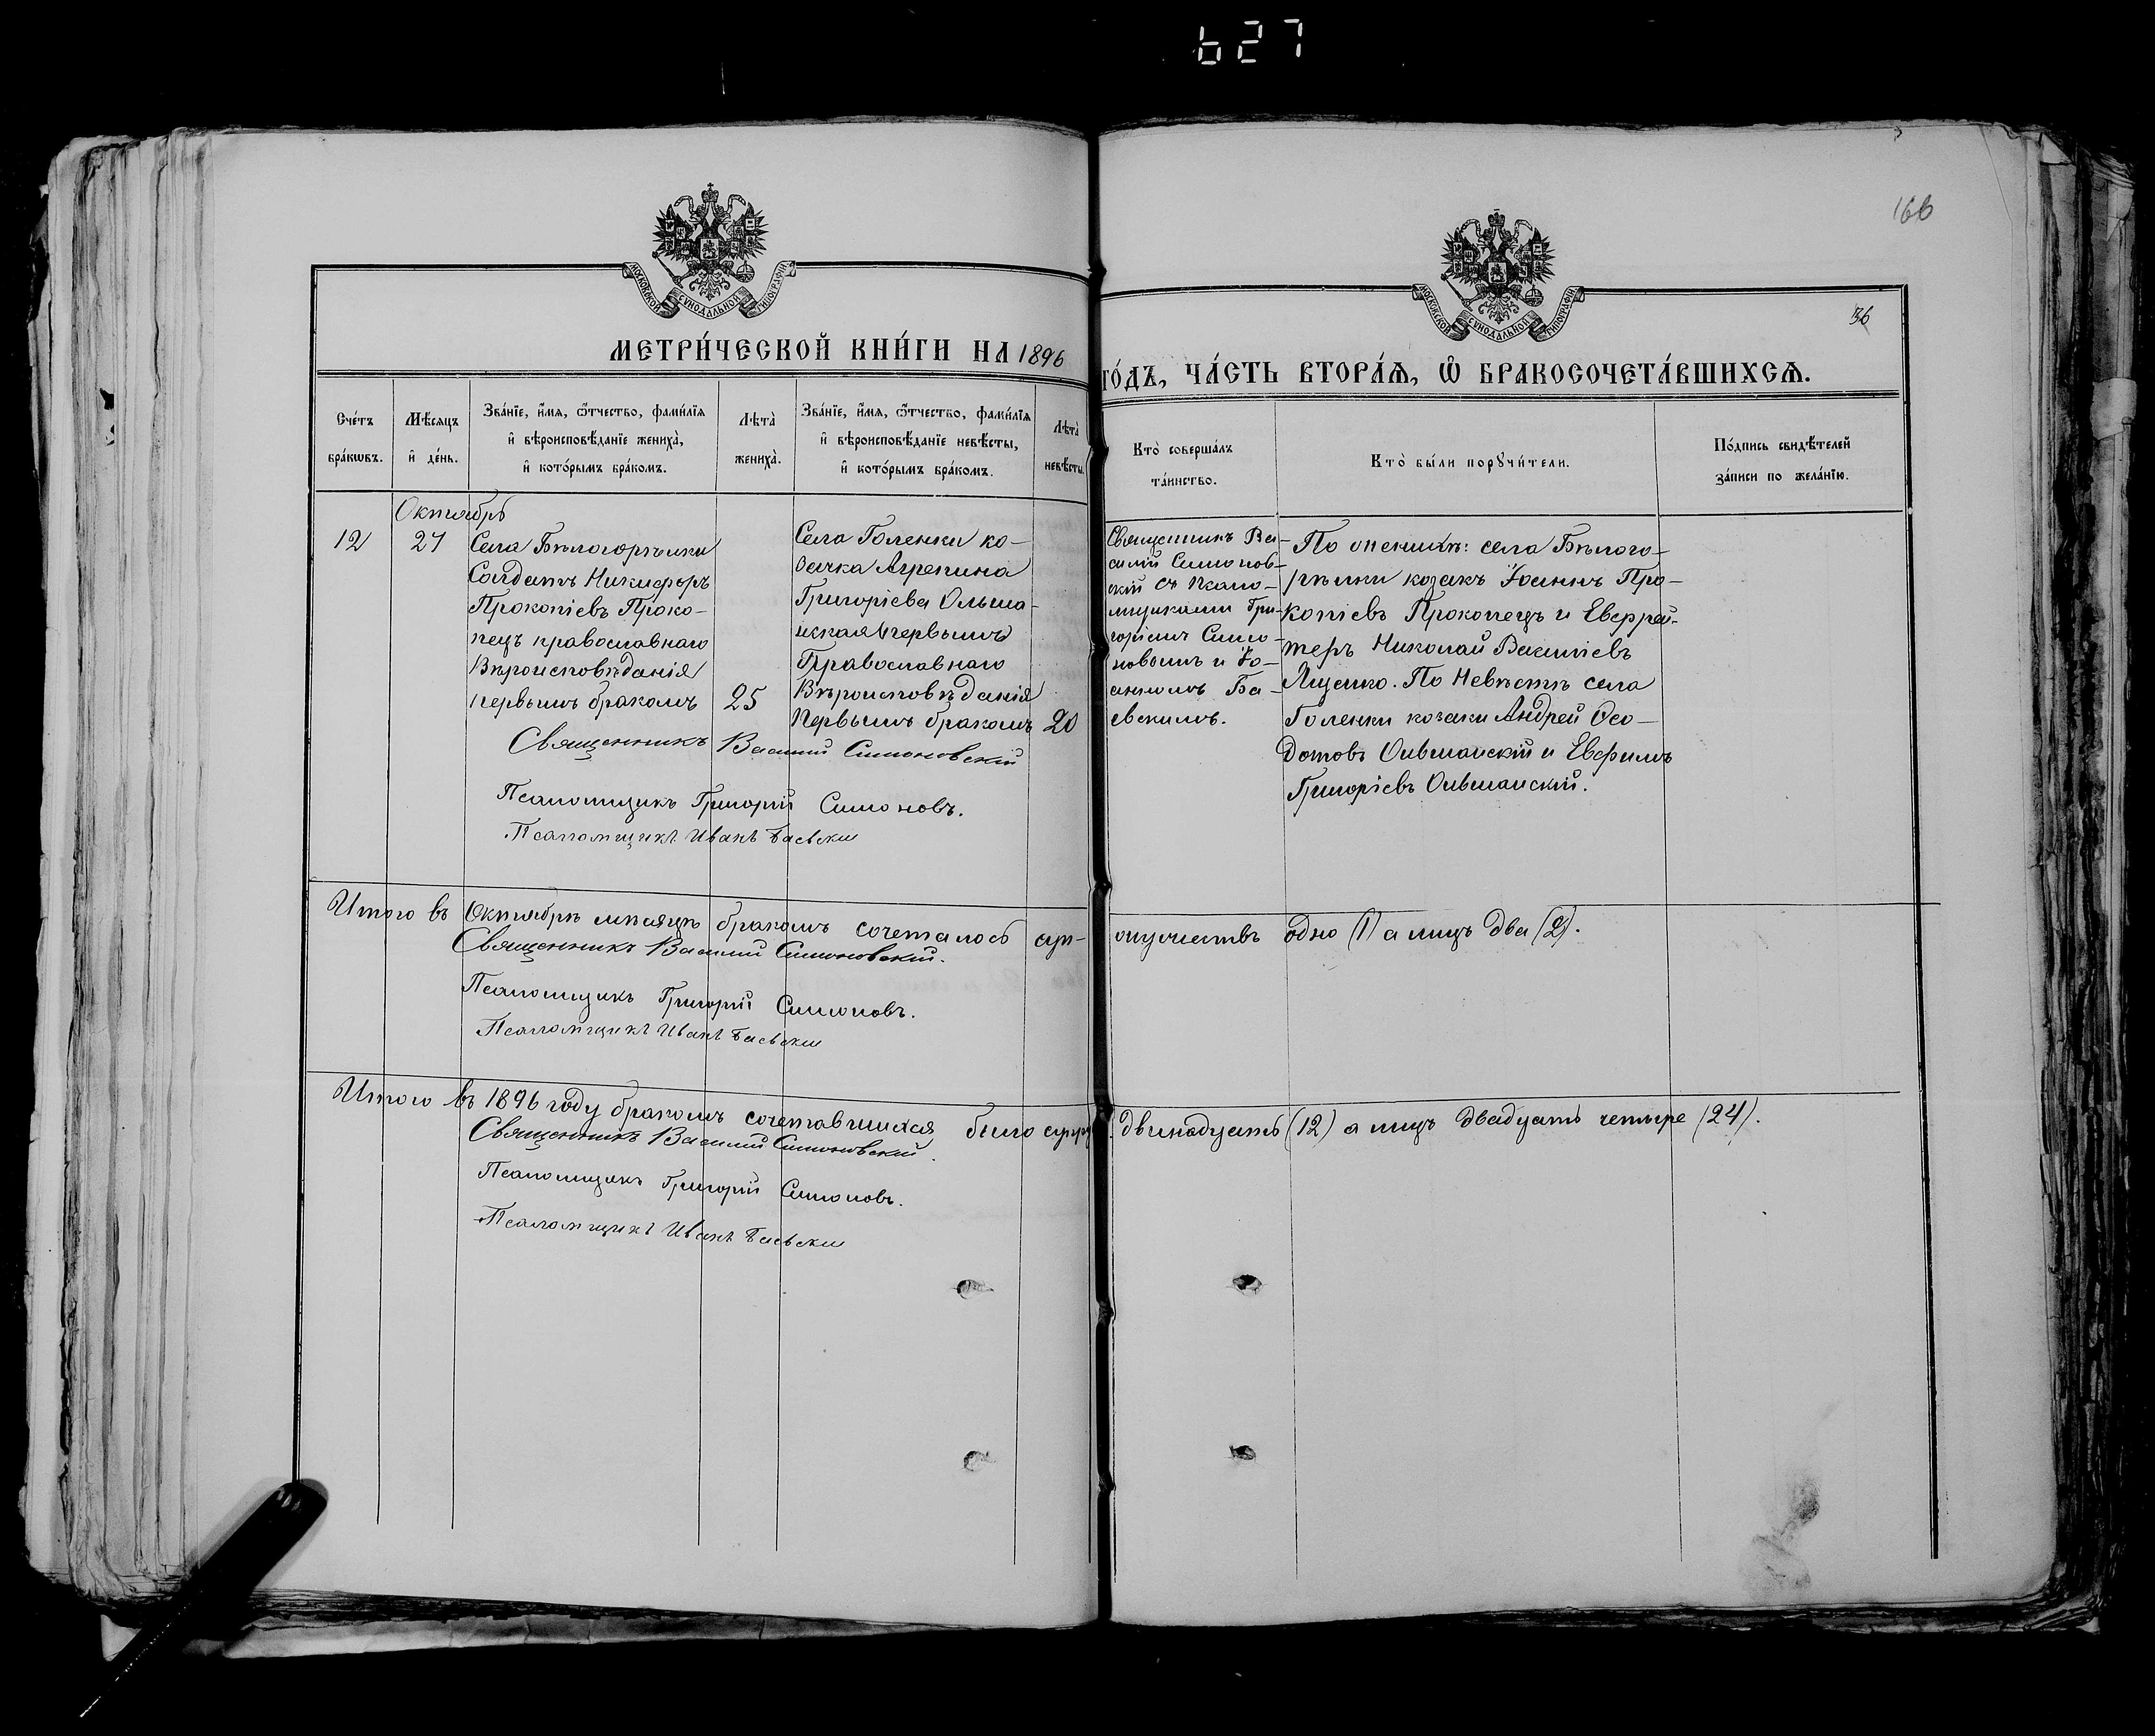 627
166
36
МОСКОВСКОЙ СѴНОДАЛЬНОЙ ТИПОГРАФІИ
МОСКОВСКОЙ СѴНОДАЛЬНОЙ ТИПОГРАФІИ
МЕТРИ́ЧЕСКОЙ КНИ́ГИ НА 1896
ГО́ДЪ, ЧА́СТЬ ВТОРА́Ѧ, Ѡ҆ БРАКОСОЧЕТА́ВШИХСѦ.
Сче́тъ
бра́кѡвъ.
Мѣ́сяцъ
и҆ де́нь.
Зва́нїе, и҆́мѧ, ѻ҆́тчество, фами́лїѧ
и҆ вѣроисповѣ́данїе жениха̀,
и҆ кото́рымъ бра́комъ.
Лѣта̀
жениха̀.
Зва́нїе, и҆́мѧ, ѻ҆́тчество, фами́лїѧ
и҆ вѣроисповѣ́данїе невѣ́сты,
и҆ кото́рымъ бра́комъ.
Лѣта̀
невѣ́сты.
Кто̀ соверша́лъ
та́инство.
Кто̀ бы́ли порꙋчи́тели.
По́дпись свидѣ́телей
за́писи по жела́нїю.
Октябрь
12
27
Села Бѣлогорѣлки
Солдатъ Никифоръ
Прокопіевъ Проко-
пецъ православнаго
Вѣроисповѣданія
первымъ бракомъ
25
Села Голенки ко-
зачка Агрепина
Григоріева Ольша-
нская первымъ
Православнаго
Вѣроисповѣданія
Первымъ бракомъ
20
Священникъ Ва-
силій Симонов-
скій съ псало-
мщиками Гри-
горіемъ Симо-
новымъ и Іо-
анномъ Ба-
евскимъ.
По женихѣ: села Бѣлого-
рѣлки козакъ Іоаннъ Про-
копіевъ Прокопецъ и Ефрей-
теръ Николай Василіевъ
Яценко. По Невѣстѣ села
Голенки козаки Андрей Ѳео-
дотовъ Ольшанскій и Евфимъ
Григоріевъ Ольшанскій.
Священникъ Василій Симоновскій
Псаломщикъ Григорій Симоновъ.
Псаломщикъ Иванъ Баевскій
Итого въ Октябрѣ мѣсяцѣ бракомъ сочеталось суп- ружествъ одно (1) а лицъ два (2).
Священникъ Василій Симоновскій.
Псаломщикъ Григорій Симоновъ.
Псаломщикъ Иванъ Баевскій
Итого въ 1896 году бракомъ сочетавшихся было супр. двѣнадцать (12) а лицъ двадцать четыре (24).
Священникъ Василій Симоновскій.
Псаломщикъ Григорій Симоновъ.
Псаломщикъ Иванъ Баевскій